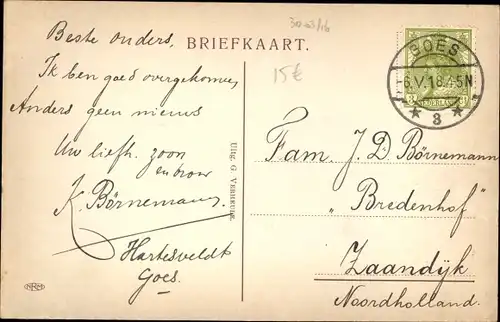 30-03/16
BRIEFKAART.
15€
Beste ouders,
Ik ben goed overgekomen,
Anders geen nieuws
Uw liefh. zoon
en broer
K. Börnemann.
Hartesveldt
Goes.
Uitg. G. Verheule.
NRM
GOES
6.V.18.4-5N
3
NEDERLAND
Fam. J. D. Börnemann
„Bredenhof"
Zaandijk
Noordholland.